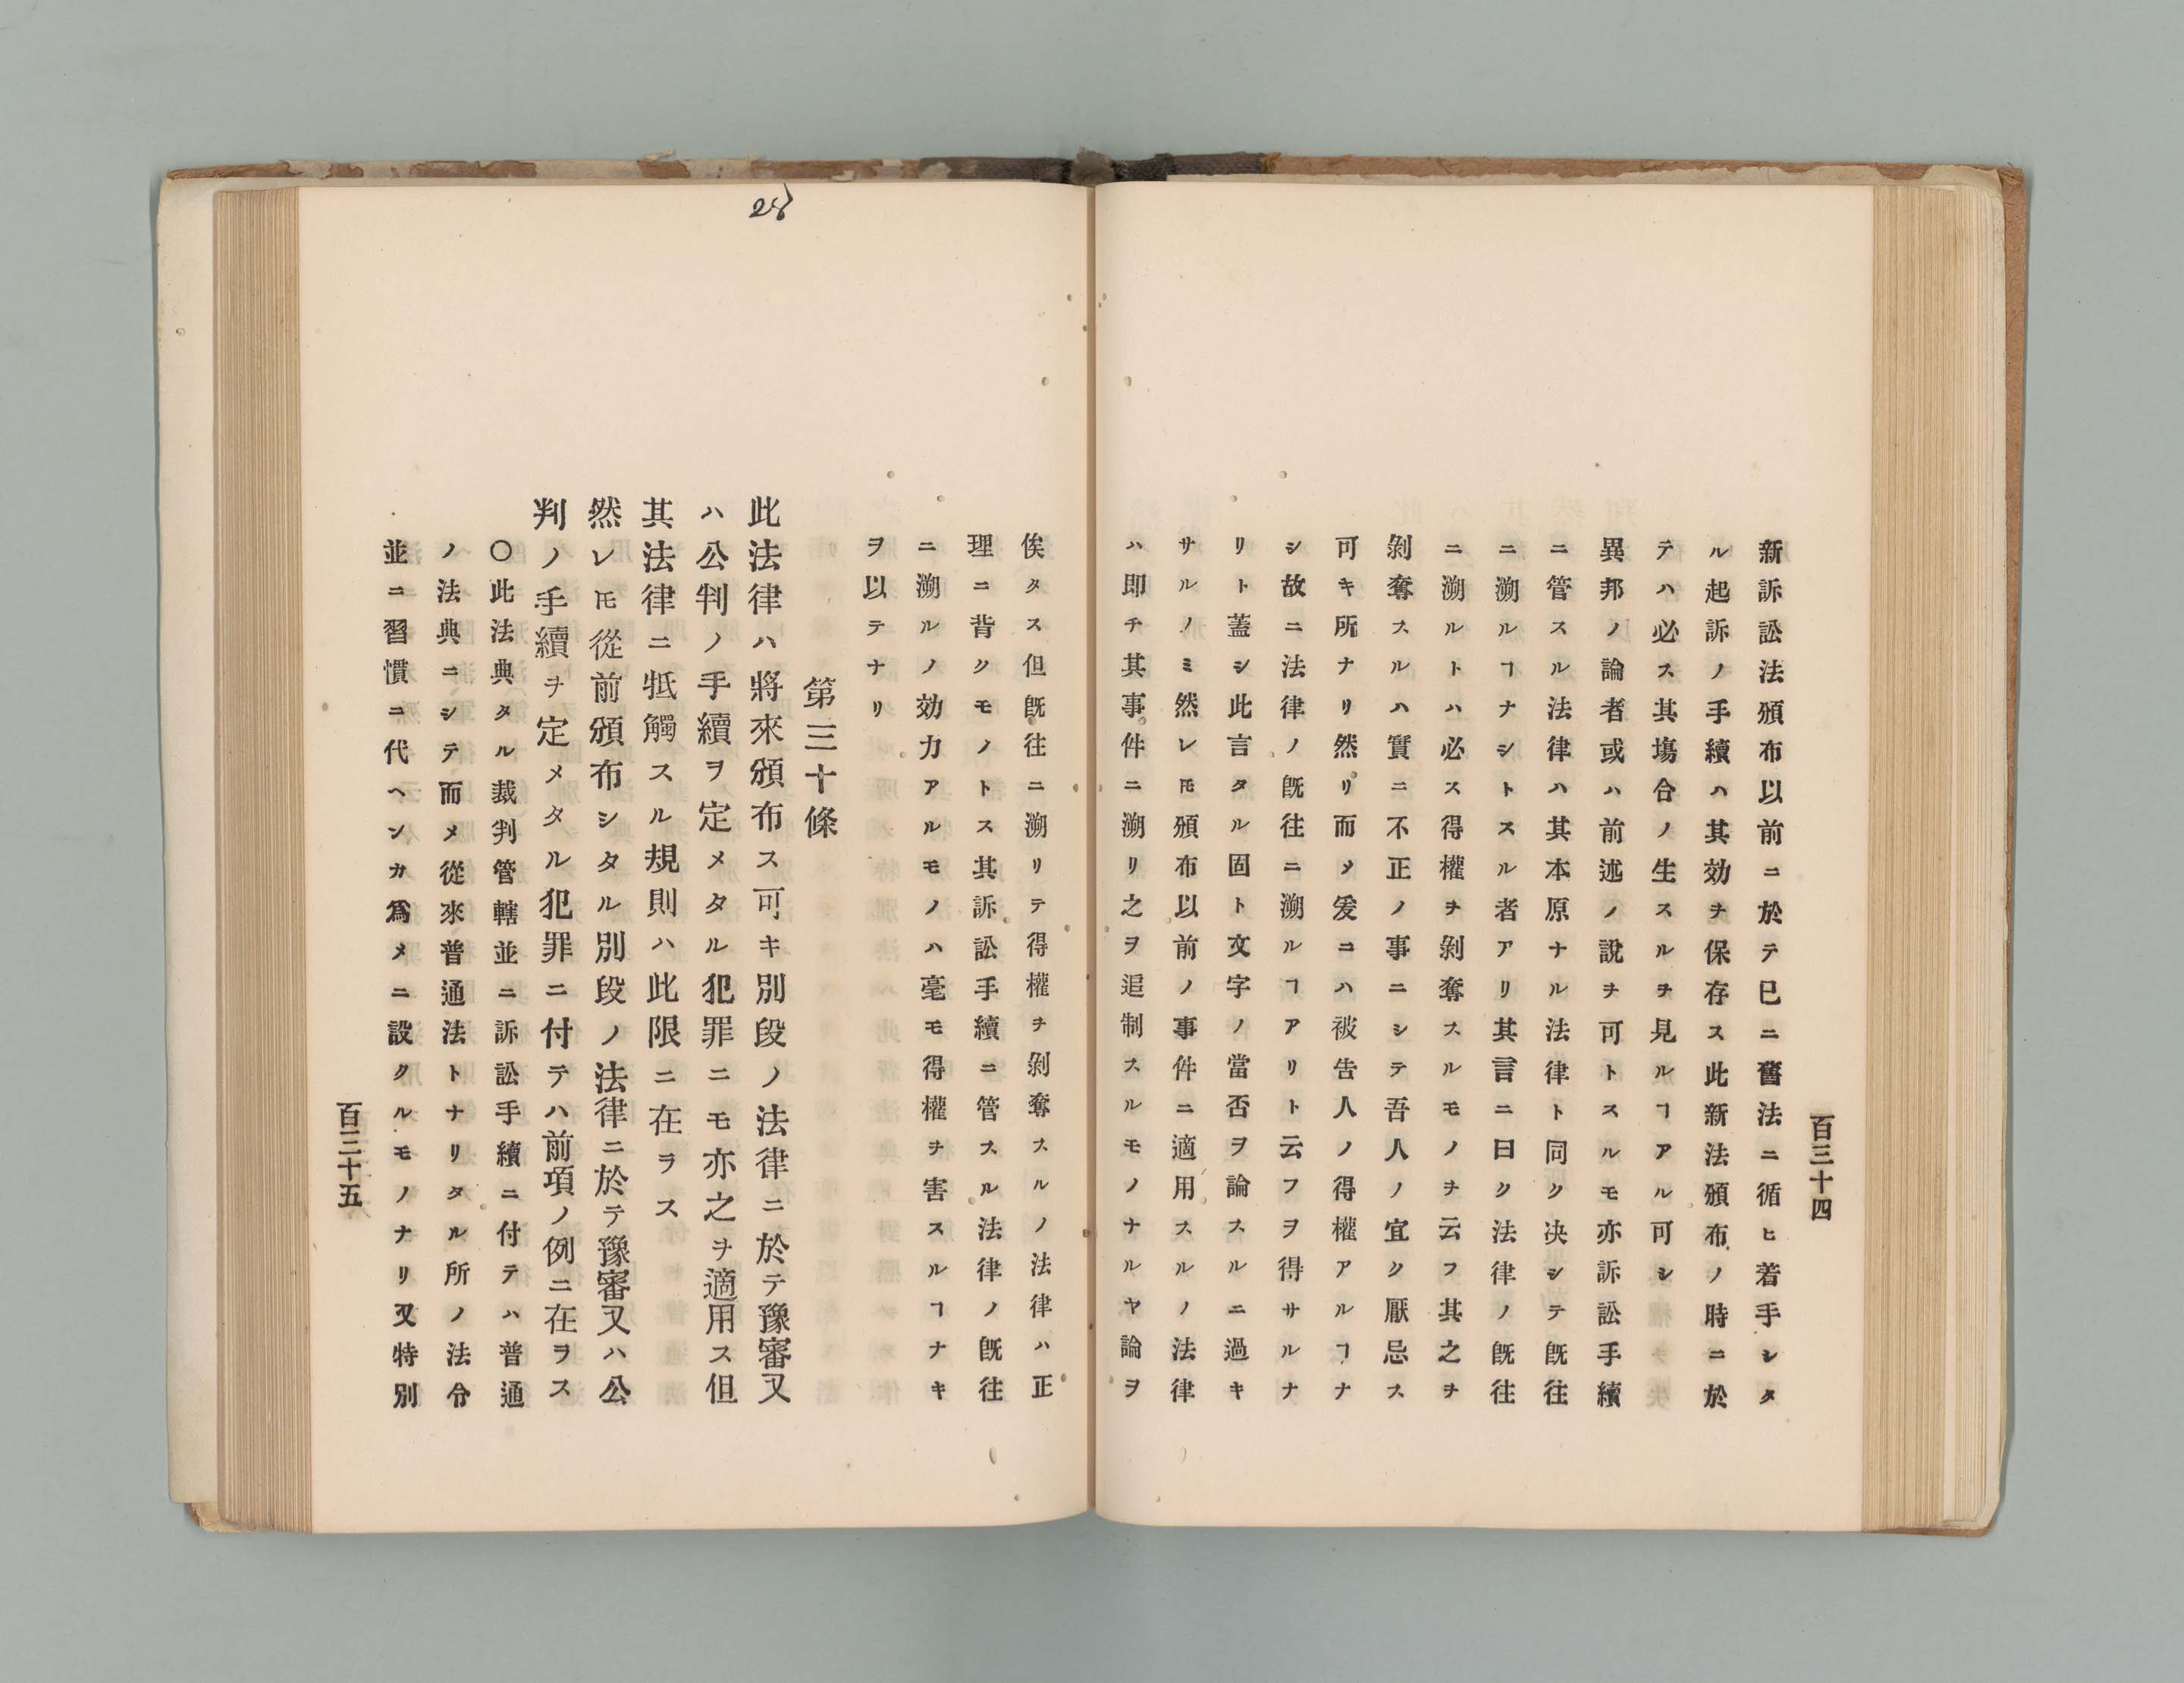 百三十四
新訴訟法頒布以前ニ於テ已ニ舊法ニ循ヒ着手シタ
ル起訴ノ手續ハ其効ヲ保存ス此新法頒布ノ時ニ於
テハ必ス其塲合ノ生スルヲ見ルヿアル可シ
異邦ノ論者或ハ前述ノ說ヲ可トスルモ亦訴訟手續
ニ管スル法律ハ其本原ナル法律ト同ク决シテ既往
ニ溯ルヿナシトスル者アリ其言ニ曰ク法律ノ既往
ニ溯ルトハ必ス得權ヲ剝奪スルモノヲ云フ其之ヲ
剝奪スルハ實ニ不正ノ事ニシテ吾人ノ宜ク厭忌ス
可キ所ナリ然リ而メ爰ニハ被告人ノ得權アルヿナ
シ故ニ法律ノ既往ニ溯ルヿアリト云フヲ得サルナ
リト蓋シ此言タル固ト文字ノ當否ヲ論スルニ過キ
サルノミ然レ𪜈頒布以前ノ事件ニ適用スルノ法律
ハ即チ其事件ニ溯リ之ヲ追制スルモノナルヤ論ヲ
俟タス但既往ニ溯リテ得權ヲ剝奪スルノ法律ハ正
理ニ背クモノトス其訴訟手續ニ管スル法律ノ既往
ニ溯ルノ効力アルモノハ毫モ得權ヲ害スルヿナキ
ヲ以テナリ
第三十條
此法律ハ將來頒布ス可キ別段ノ法律ニ於テ豫審又
ハ公判ノ手續ヲ定メタル犯罪ニモ亦之ヲ適用ス但
其法律ニ牴觸スル規則ハ此限ニ在ラス
然レ𪜈從前頒布シタル別段ノ法律ニ於テ豫審又ハ公
判ノ手續ヲ定メタル犯罪ニ付テハ前項ノ例ニ在ラス
〇此法典タル裁判管轄並ニ訴訟手續ニ付テハ普通
ノ法典ニシテ而メ從來普通法トナリタル所ノ法令
並ニ習慣ニ代ヘンカ爲メニ設クルモノナリ又特別
百三十五